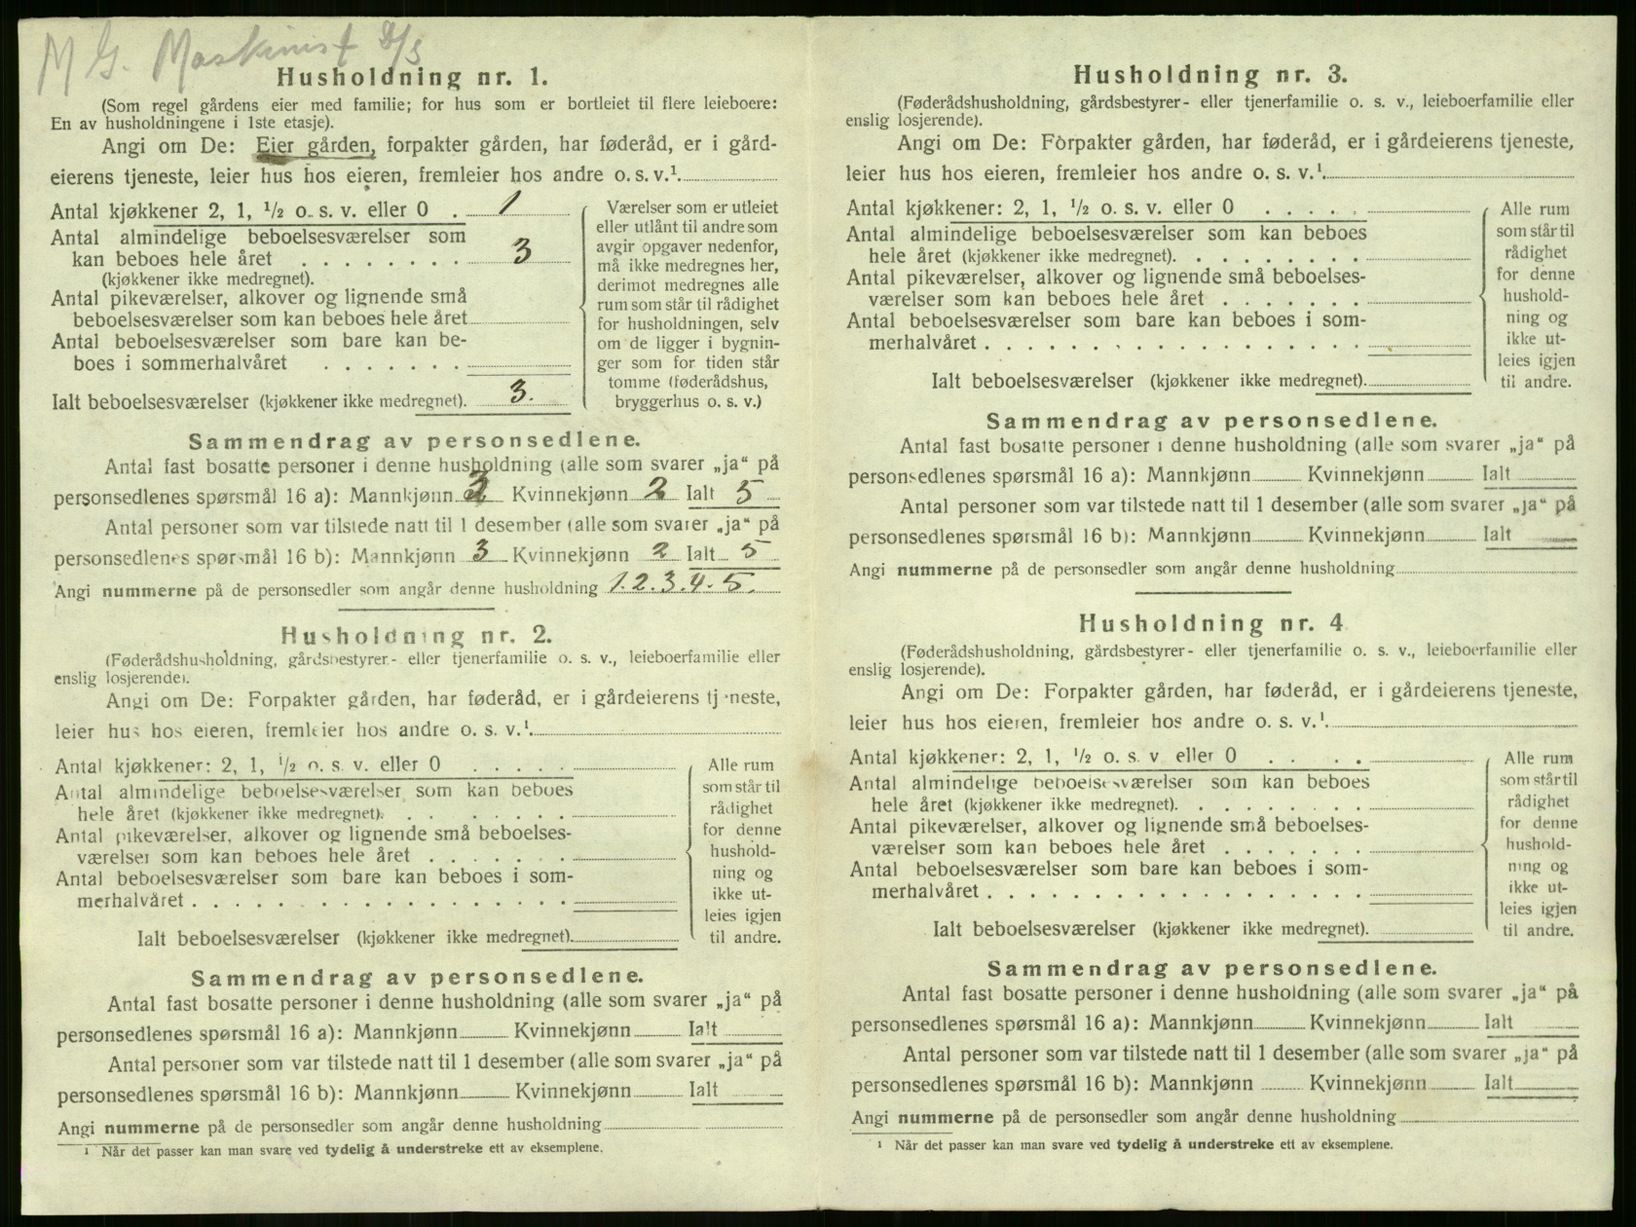 M G. Maskinist D/S
Husholdning nr. 1.
(Som regel gårdens eier med familie; for hus som er bortleiet til flere leieboere:
En av husholdningene i 1ste etasje).
Angi om De: Eier gården, forpakter gården, har føderåd, er i gård-
eierens tjeneste, leier hus hos eieren, fremleier hos andre o. s. v.¹
Antal kjøkkener 2, 1, ½ o. s. v. eller 0 . 1
Antal almindelige beboelsesværelser som
kan beboes hele året . . . . . . . . 3
(kjøkkener ikke medregnet).
Antal pikeværelser, alkover og lignende små
beboelsesværelser som kan beboes hele året
Antal beboelsesværelser som bare kan be-
boes i sommerhalvåret . . . . . . .
Ialt beboelsesværelser (kjøkkener ikke medregnet). 3.
Værelser som er utleiet
eller utlånt til andre som
avgir opgaver nedenfor,
må ikke medregnes her,
derimot medregnes alle
rum som står til rådighet
for husholdningen, selv
om de ligger i bygnin-
ger som for tiden står
tomme (føderådshus,
bryggerhus o. s. v.)
Sammendrag av personsedlene.
Antal fast bosatte personer i denne husholdning (alle som svarer „ja“ på
personsedlenes spørsmål 16 a): Mannkjønn 3 Kvinnekjønn 2 Ialt 5
Antal personer som var tilstede natt til 1 desember (alle som svarer „ja“ på
personsedlenes spørsmål 16 b): Mannkjønn 3 Kvinnekjønn 2 Ialt 5
Angi nummerne på de personsedler som angår denne husholdning 1.2.3.4.5.
Husholdning nr. 2.
(Føderådshusholdning, gårdsbestyrer- eller tjenerfamilie o. s. v., leieboerfamilie eller
enslig losjerende).
Angi om De: Forpakter gården, har føderåd, er i gårdeierens tjeneste,
leier hus hos eieren, fremleier hos andre o. s. v.¹
Antal kjøkkener: 2, 1, ½ o. s. v. eller 0 . . . . .
Antal almindelige beboelsesværelser som kan beboes
hele året (kjøkkener ikke medregnet). . . . . . . .
Antal pikeværelser, alkover og lignende små beboelses-
værelser som kan beboes hele året . . . . . . .
Antal beboelsesværelser som bare kan beboes i som-
merhalvåret . . . . . . . . . . . . . . . . . .
Ialt beboelsesværelser (kjøkkener ikke medregnet).
Alle rum
som står til
rådighet
for denne
hushold-
ning og
ikke ut-
leies igjen
til andre.
Sammendrag av personsedlene.
Antal fast bosatte personer i denne husholdning (alle som svarer „ja“ på
personsedlenes spørsmål 16 a): Mannkjønn Kvinnekjønn Ialt
Antal personer som var tilstede natt til 1 desember (alle som svarer „ja“ på
personsedlenes spørsmål 16 b): Mannkjønn Kvinnekjønn Ialt
Angi nummerne på de personsedler som angår denne husholdning
¹ Når det passer kan man svare ved tydelig å understreke ett av eksemplene.
Husholdning nr. 3.
(Føderådshusholdning, gårdsbestyrer- eller tjenerfamilie o. s. v., leieboerfamilie eller
enslig losjerende).
Angi om De: Forpakter gården, har føderåd, er i gårdeierens tjeneste,
leier hus hos eieren, fremleier hos andre o. s. v.¹
Antal kjøkkener: 2, 1, ½ o. s. v. eller 0 . . . . .
Antal almindelige beboelsesværelser som kan beboes
hele året (kjøkkener ikke medregnet). . . . . . . . .
Antal pikeværelser, alkover og lignende små beboelses-
værelser som kan beboes hele året . . . . . . .
Antal beboelsesværelser som bare kan beboes i som-
merhalvåret . . . . . . . . . . . . . . . . . .
Ialt beboelsesværelser (kjøkkener ikke medregnet).
Alle rum
som står til
rådighet
for denne
hushold-
ning og
ikke ut-
leies igjen
til andre.
Sammendrag av personsedlene.
Antal fast bosatte personer i denne husholdning (alle som svarer „ja“ på
personsedlenes spørsmål 16 a): Mannkjønn Kvinnekjønn Ialt
Antal personer som var tilstede natt til 1 desember (alle som svarer „ja“ på
personsedlenes spørsmål 16 b): Mannkjønn Kvinnekjønn Ialt
Angi nummerne på de personsedler som angår denne husholdning
Husholdning nr. 4
(Føderådshusholdning, gårdsbestyrer- eller tjenerfamilie o. s. v., leieboerfamilie eller
enslig losjerende).
Angi om De: Forpakter gården, har føderåd, er i gårdeierens tjeneste,
leier hus hos eieren, fremleier hos andre o. s. v.¹
Antal kjøkkener: 2, 1, ½ o. s. v eller 0 . . . . .
Antal almindelige beboelsesværelser som kan beboes
hele året (kjøkkener ikke medregnet). . . . . . . . .
Antal pikeværelser, alkover og lignende små beboelses-
værelser som kan beboes hele året . . . . . . .
Antal beboelsesværelser som bare kan beboes i som-
merhalvåret . . . . . . . . . . . . . . . . . .
Ialt beboelsesværelser (kjøkkener ikke medregnet).
Alle rum
som står til
rådighet
for denne
hushold-
ning og
ikke ut-
leies igjen
til andre.
Sammendrag av personsedlene.
Antal fast bosatte personer i denne husholdning (alle som svarer „ja“ på
personsedlenes spørsmål 16 a): Mannkjønn Kvinnekjønn Ialt
Antal personer som var tilstede natt til 1 desember (alle som svarer „ja“ på
personsedlenes spørsmål 16 b): Mannkjønn Kvinnekjønn Ialt
Angi nummerne på de personsedler som angår denne husholdning
¹ Når det passer kan man svare ved tydelig å understreke ett av eksemplene.